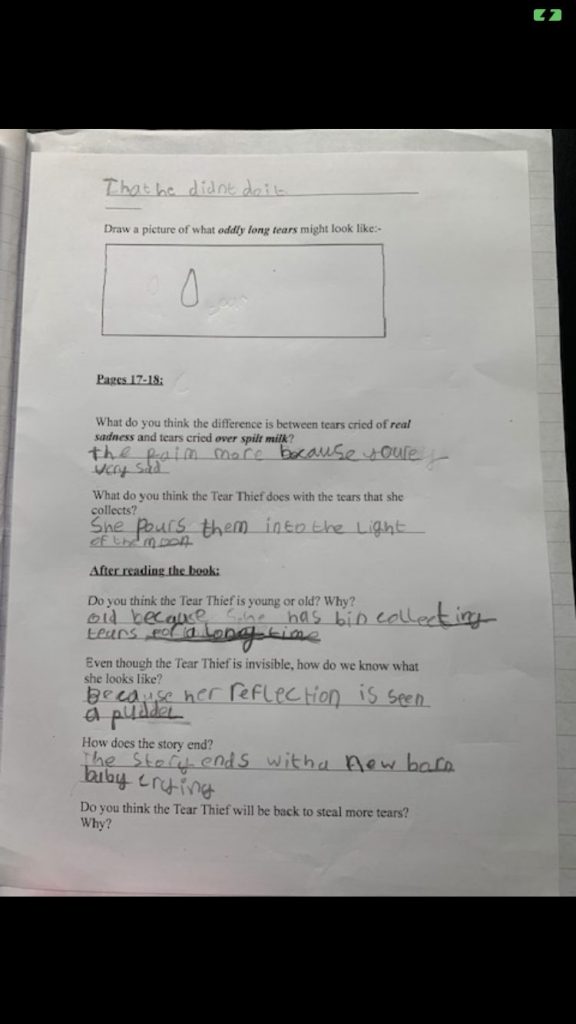 That he didnt do it
Draw a picture of what oddly long tears might look like:-
Pages 17-18:
What do you think the difference is between tears cried of real
sadness and tears cried over spilt milk?
the pain more because youre
very sad
What do you think the Tear Thief does with the tears that she
collects?
She pours them into the Light
of the moon
After reading the book:
Do you think the Tear Thief is young or old? Why?
old because she has bin collecting
tears for a long time
Even though the Tear Thief is invisible, how do we know what
she looks like?
Because her reflection is seen
a puddel
How does the story end?
The Story ends with a New born
baby crying
Do you think the Tear Thief will be back to steal more tears?
Why?